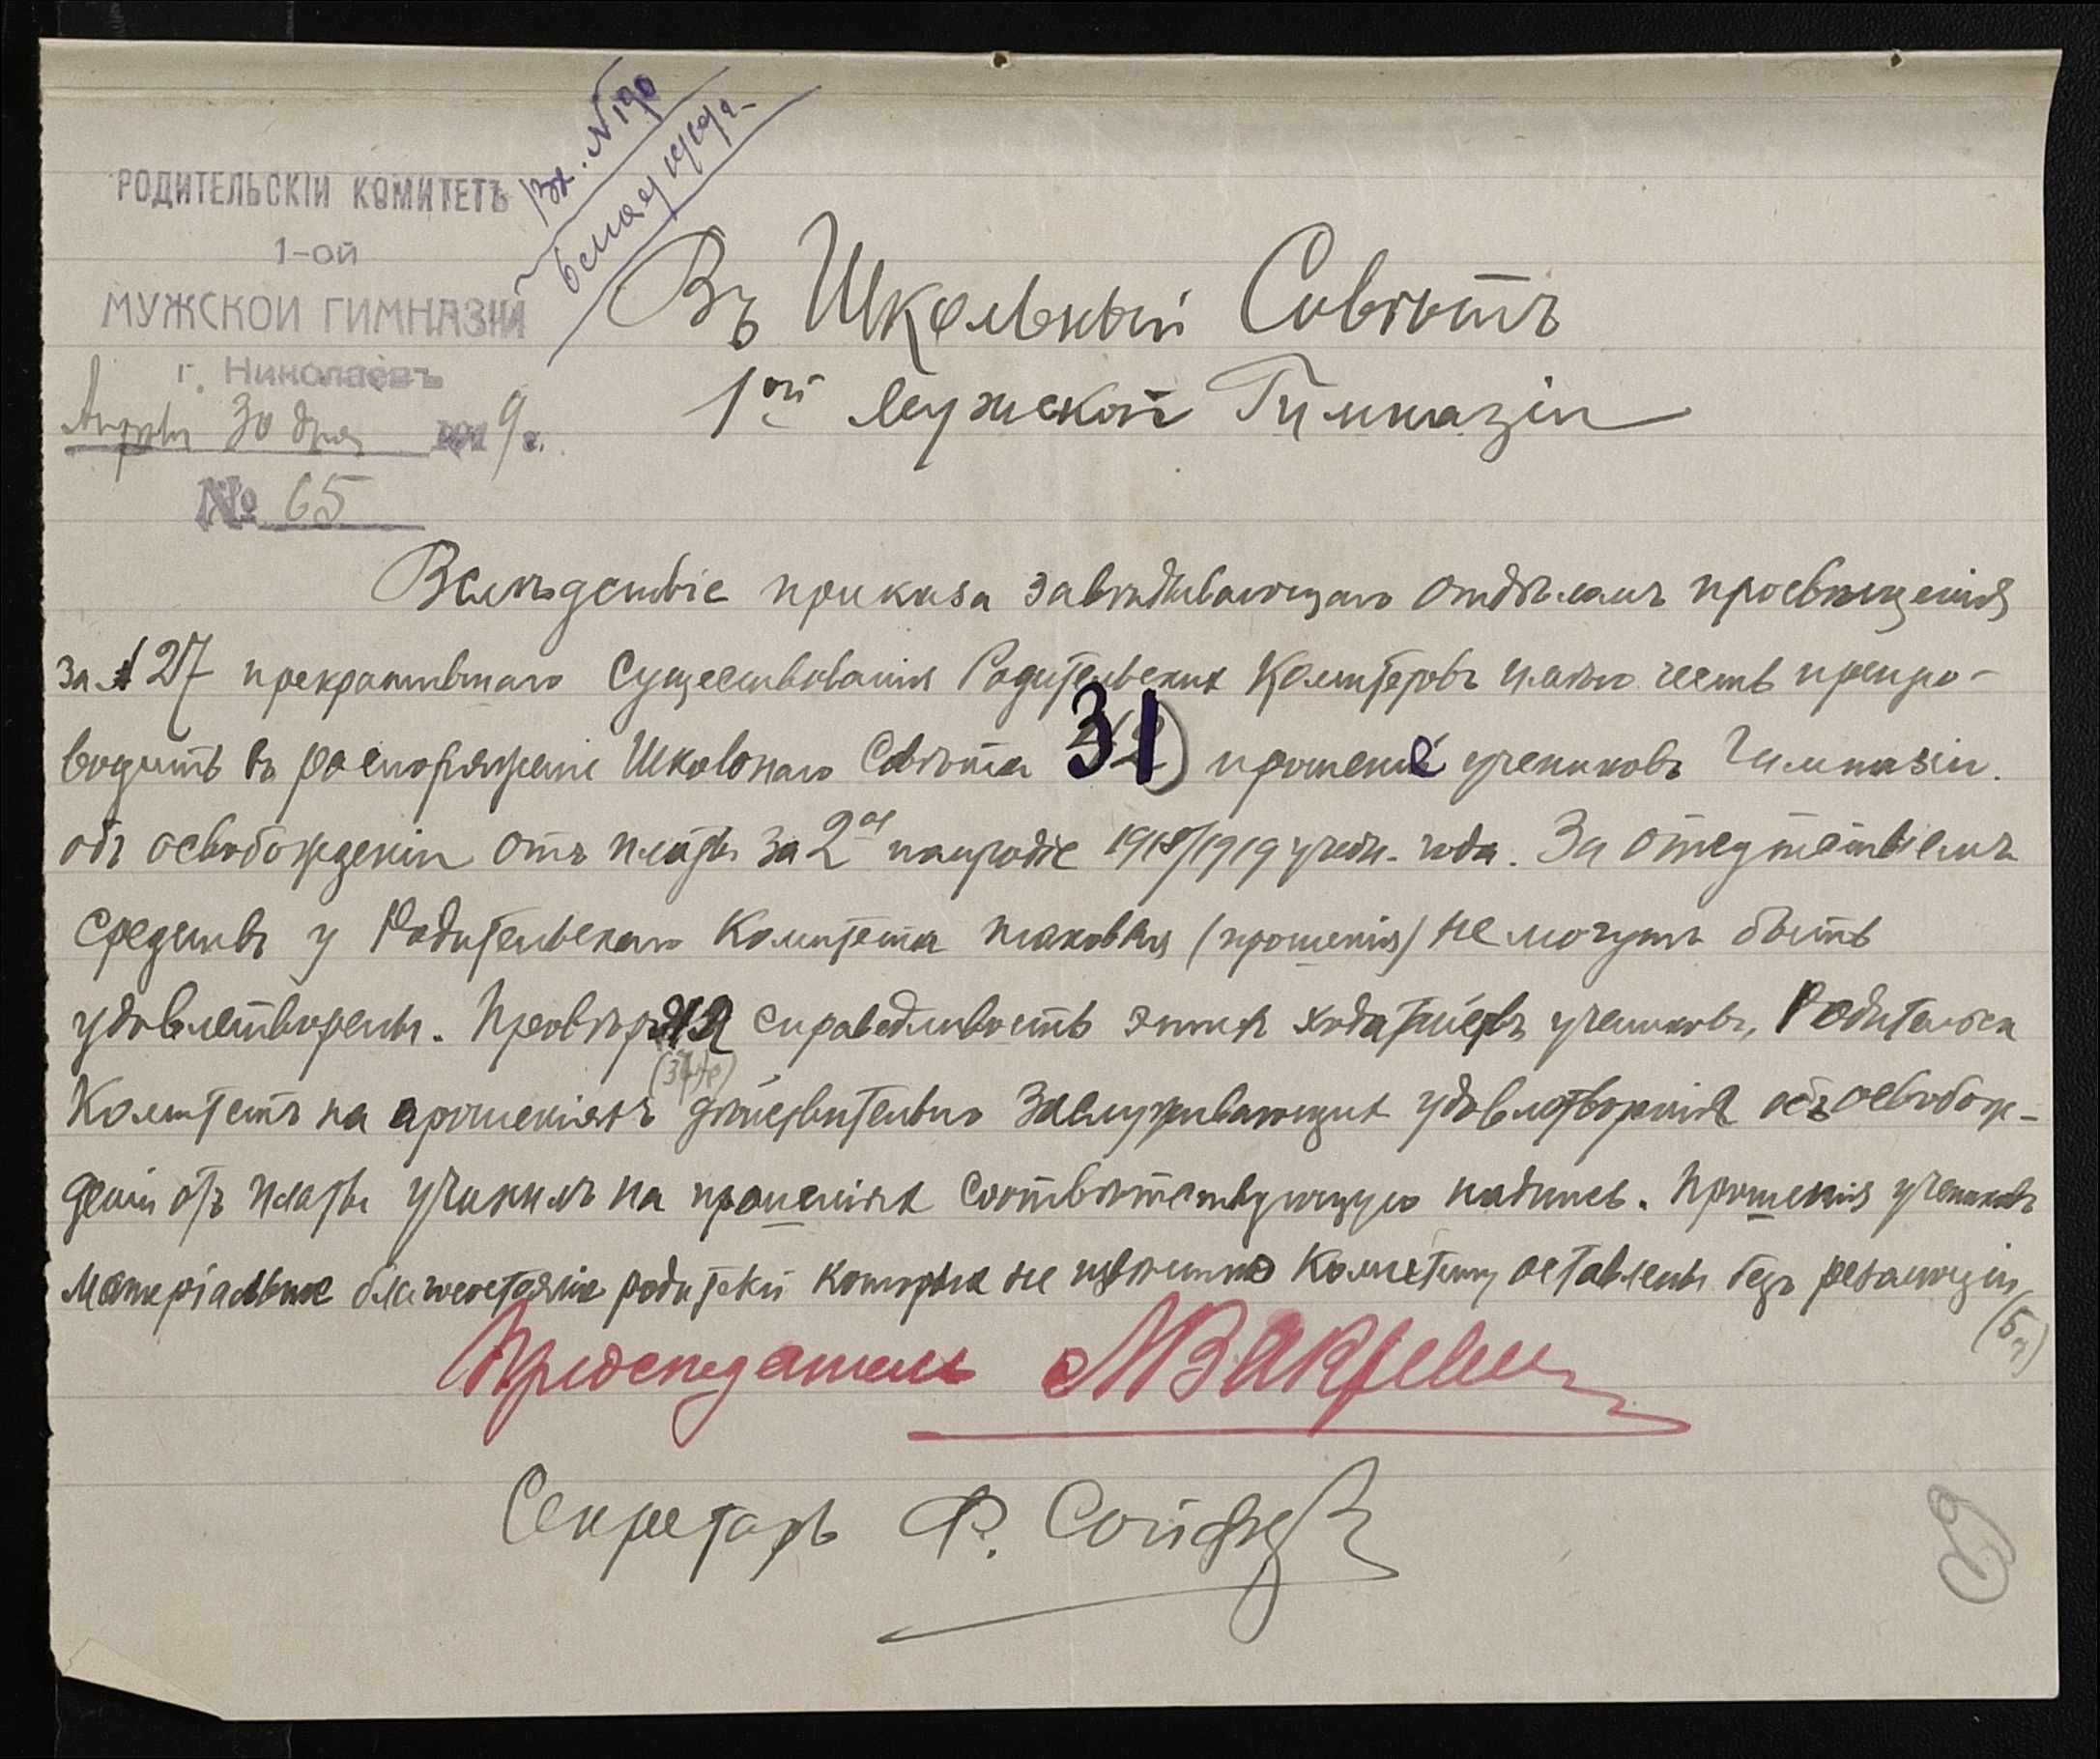 Вх. № 190
6 мая 1919 г.
РОДИТЕЛЬСКІЙ КОМИТЕТЪ
1-ой
МУЖСКОЙ ГИМНАЗІИ
г. Николаевъ
Апрѣля 30 дня 1919 г.
№ 65
Въ Школьный Совѣтъ
1ой Мужской Гимназіи
Вслѣдствіе приказа завѣдывающаго отдѣломъ просвѣщенія
за № 27 прекратившаго существованія Родительских Комитетовъ имѣю честь препро-
водить въ распоряженіе Школьнаго Совѣта 31 прошеніе учениковъ Гимназіи
объ освобожденіи отъ платы за 2ое полугодіе 1918/1919 учебн. года. За отсутствіемъ
средствъ у Родительскаго Комитета таковыя (прошенія) не могутъ быть
удовлетворены. Провѣряя справедливость этихъ ходатайствъ учениковъ, Родительск
Комитетъ на прошеніяхъ дѣйствительно заслуживающих удовлетворенія объ освобож-
деніи отъ платы учинилъ на прошеніях соотвѣтствующую надпись. Прошенія учениковъ
матеріальное благосостояніе родителей которых не извѣстно Комитету оставлены безъ резолюціи
Предсѣдатель
Секретарь Ф.